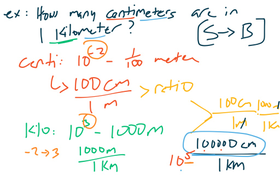 ex: How many centimeters are in
1 kilometer? [S → B]
centi: 10^-2 - 1/100 meter
↳ 100 cm / 1 m > ratio
kilo: 10^3 - 1000 m
-2 → 3 1000 m / 1 km
100 cm / 1 m
100000 cm / 1 km
10^5